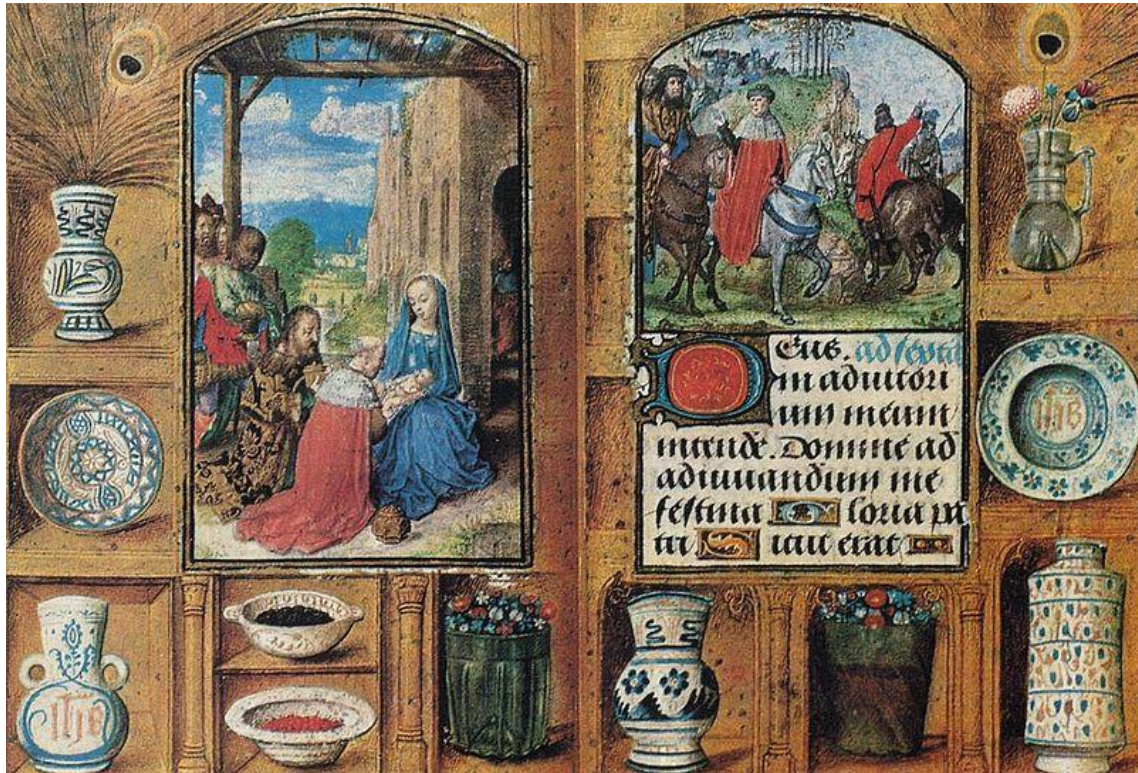 Deus. ad sexta
in adiutori
um meum
intende. Domine ad
adiuuandum me
festina Gloria pa
tri Sicut erat
ihs
ihs